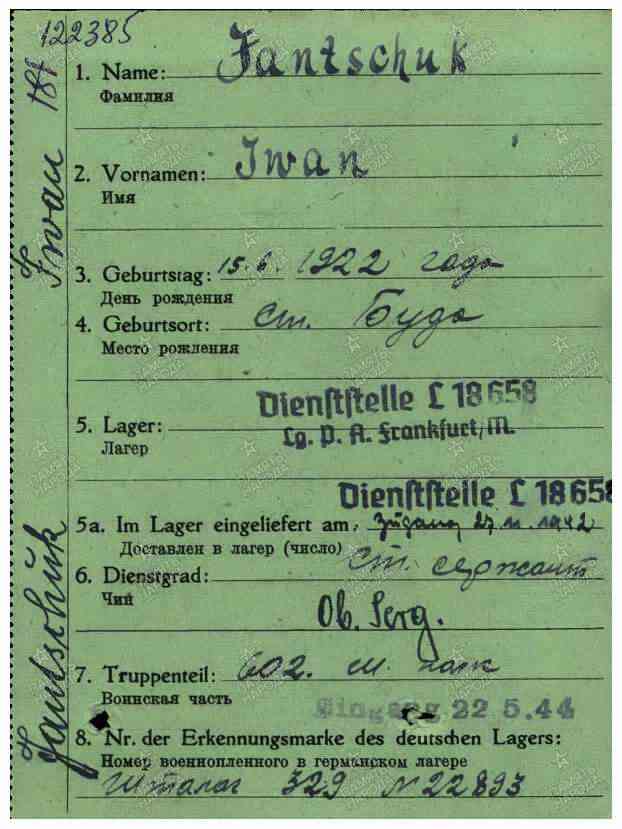 122385
1. Name: Jantschuk
Фамилия
2. Vornamen: Iwan
Имя
3. Geburtstag: 15.6. 1922 года
День рождения
4. Geburtsort: ст. Буда
Место рождения
Dienststelle L 18658
5. Lager: Lg. P. A. Frankfurt/M.
Лагер
Dienststelle L 18658
5a. Im Lager eingeliefert am: Zugang 27. 11. 1942
Доставлен в лагер (число)
6. Dienstgrad: ст. сержант
Чий
Ob. Serg.
7. Truppenteil: 602. полк
Воинская часть
Eingang 22.5.44
8. Nr. der Erkennungsmarke des deutschen Lagers:
Номер военнопленного в германском лагере
Шталаг 329 N 22893
Jantschuk Iwan